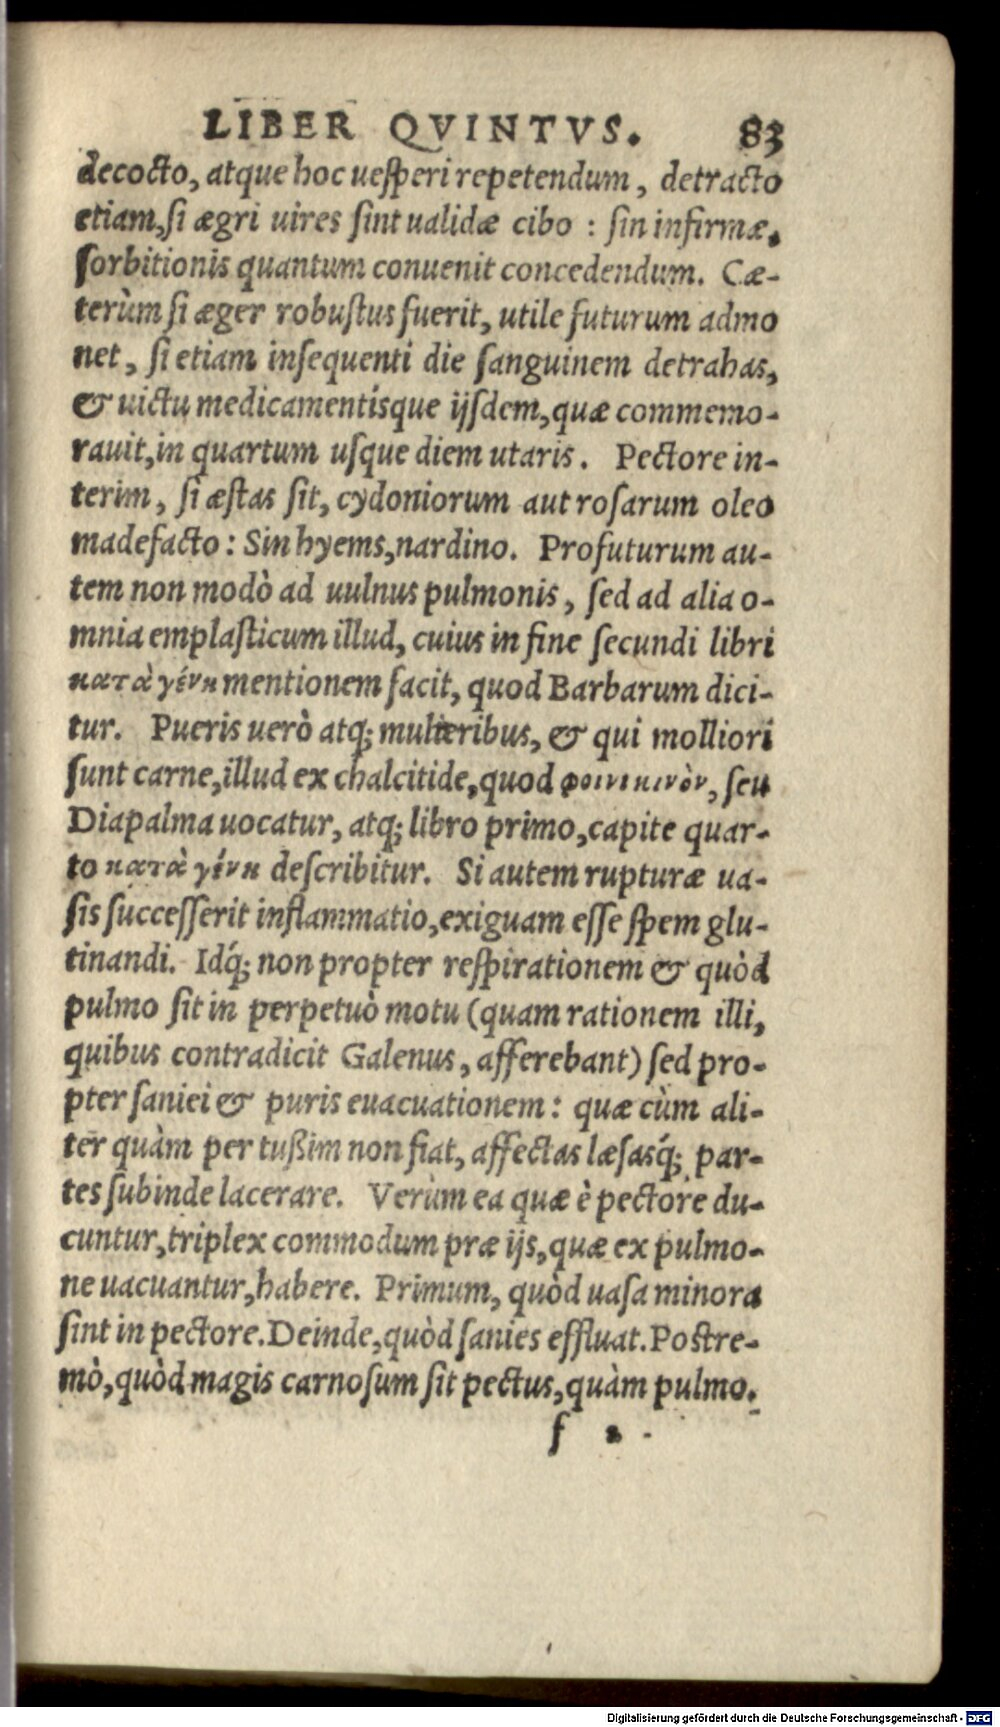 LIBER QVINTVS. 83
decocto, atque hoc uesperi repetendum, detracto
etiam, si ægri uires sint ualidæ cibo : sin infirmæ,
sorbitionis quantum conuenit concedendum. Cæ-
terùm si æger robustus fuerit, utile futurum admo
net, si etiam insequenti die sanguinem detrahas,
& uictu medicamentísque ijsdem, quæ commemo-
rauit, in quartum usque diem utaris. Pectore in-
terim, si æstas sit, cydoniorum aut rosarum oleo
madefacto: Sin hyems, nardino. Profuturum au-
tem non modò ad uulnus pulmonis, sed ad alia o-
mnia emplasticum illud, cuius in fine secundi libri
κατὰ γένη mentionem facit, quod Barbarum dici-
tur. Pueris uerò atq; mulieribus, & qui molliori
sunt carne, illud ex chalcitide, quod φοινικινὸν, seu
Diapalma uocatur, atq; libro primo, capite quar-
to κατὰ γένη describitur. Si autem rupturæ ua-
sis successerit inflammatio, exiguam esse spem glu-
tinandi. Idq́; non propter respirationem & quòd
pulmo sit in perpetuò motu (quam rationem illi,
quibus contradicit Galenus, afferebant) sed pro-
pter saniei & puris euacuationem: quæ cùm ali-
ter quàm per tußim non fiat, affectas læsasq́; par-
tes subinde lacerare. Verùm ea quæ è pectore du-
cuntur, triplex commodum præ ijs, quæ ex pulmo-
ne uacuantur, habere. Primum, quòd uasa minora
sint in pectore. Deinde, quòd sanies effluat. Postre-
mò, quòd magis carnosum sit pectus, quàm pulmo.
f 2
Digitalisierung gefördert durch die Deutsche Forschungsgemeinschaft - DFG